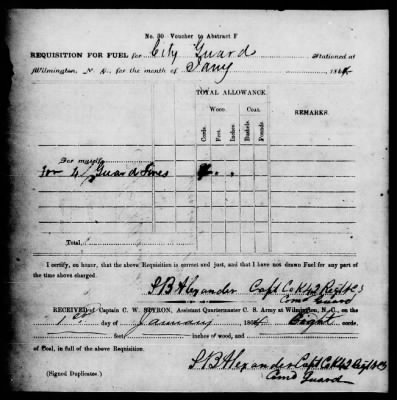 No. 30 Voucher to Abstract F
REQUISITION FOR FUEL for City Guard Stationed at
Wilmington, N. C., for the month of Jany 1864
TOTAL ALLOWANCE.
WOOD. COAL. REMARKS.
Cords. Feet. Inches. Bushels. Pounds.
For myself
For 4/2 Guard Fires
Total,
I certify, on honor, that the above Requisition is correct and just, and that I have not drawn Fuel for any part of
the time above charged.
S B Alexander Capt Co K 42 Regt NC
Comd Guard
RECEIVED of Captain C. W. STYRON, Assistant Quartermaster C. S. Army at Wilmington, N. C., on the
1st day of January 1864, Eight cords
feet inches of wood, and
of Coal, in full of the above Requisition.
S B Alexander Capt Co K 42 Regt NC
Comd Guard
(Signed Duplicates.)